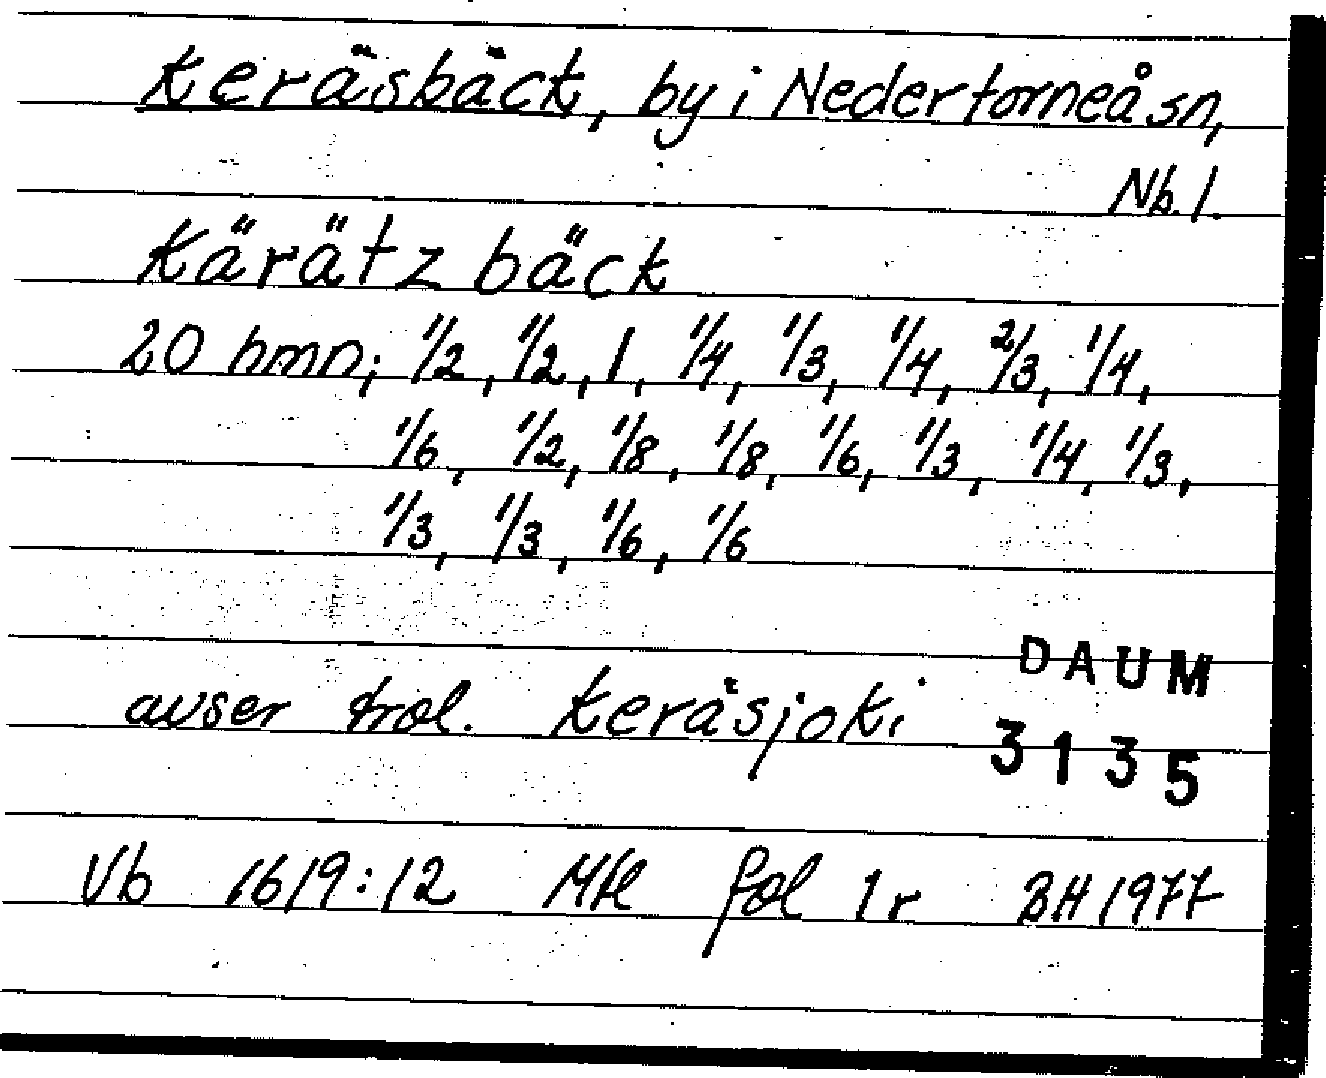 Keräsbäck, by i Nedertorneå sn,
Nb. l.
Kärätz bäck
20 hmn; 1/2, 1/2, 1, 1/4, 1/3, 1/4, 2/3, 1/4,
1/6, 1/2, 1/8, 1/8, 1/6, 1/3, 1/4, 1/3,
1/3, 1/3, 1/6, 1/6
DAUM
avser trol. Keräsjoki
3135
Vb 1619:12 Mtl fol 1r BH 1977